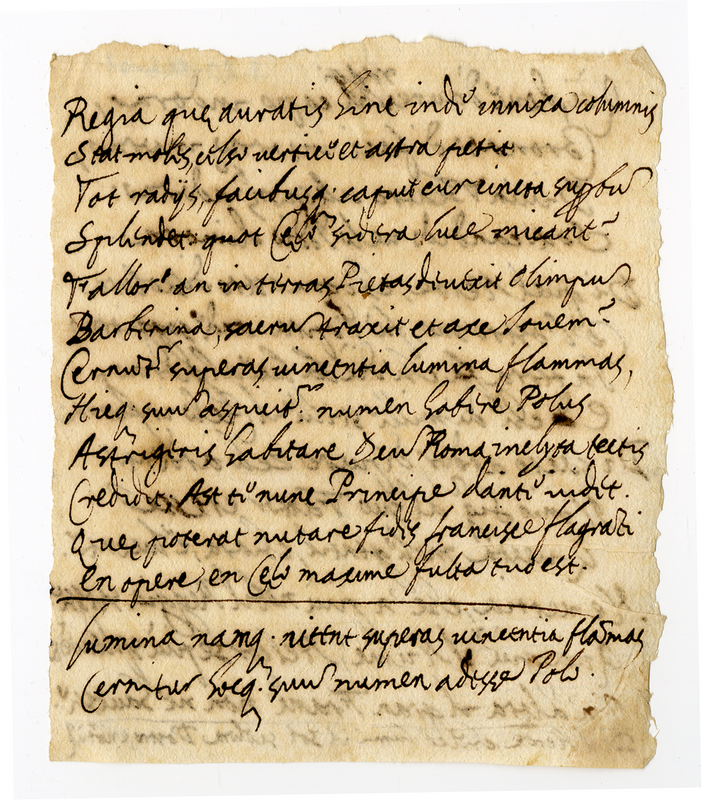 Regia quę auratis hinc indè innixa columnis
Stat molis, celso vertice et astra petit
Tot radijs, facibusq. caput cur cincta supbũ
Splendet: quot Cęlo sidera luce micant?
Fallor? an in terras Pietas deuexit Olimpũ
Barberina, sacrũ traxit et axe Iouem?
Cernũt superas uincentia lumina flammas,
Hicq. suũ aspicit numen habere Polus
Astrigeris habitare Deũ Roma inclyta tectis
Credidit; Ast tè nunc Principe dantè uidit.
Quę poterat nutare fidis francisce flagrãti
En opere, en Cęlo maxime fulta tuo est.
lumina namq. nitent superas uincentia flãmas
Cernitur hocq. suũ numen adesse Polo.